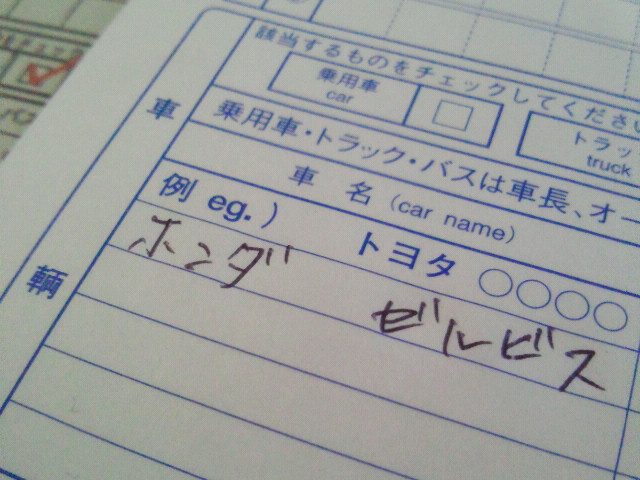 該当するものをチェックしてください
乗用車
car
トラッ
truck
乗用車・トラック・バスは車長、オー
車 名 (car name)
例 eg.) トヨタ ○○○○
ホンダ ゼルビス
車
輌